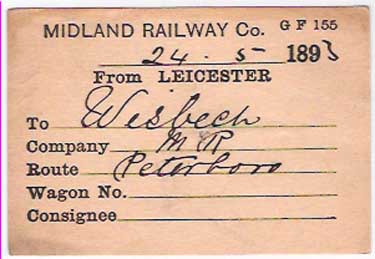 MIDLAND RAILWAY Co. G F 155
24. 5 1893
From LEICESTER
To Wisbech
Company M R
Route Peterboro
Wagon No.
Consignee